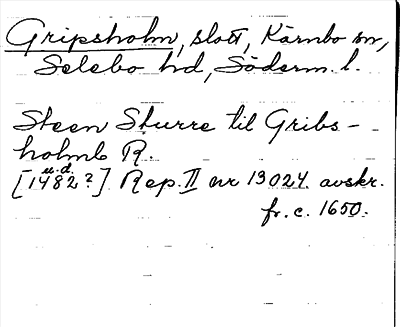 Gripsholm, slott, Kärnbo sn,
Selebo hd, Söderm. l.
Steen Sturre til Gribs-
holmb R.
u.d.
[1482?] Rep. II nr 13024 avskr.
fr. c. 1650.